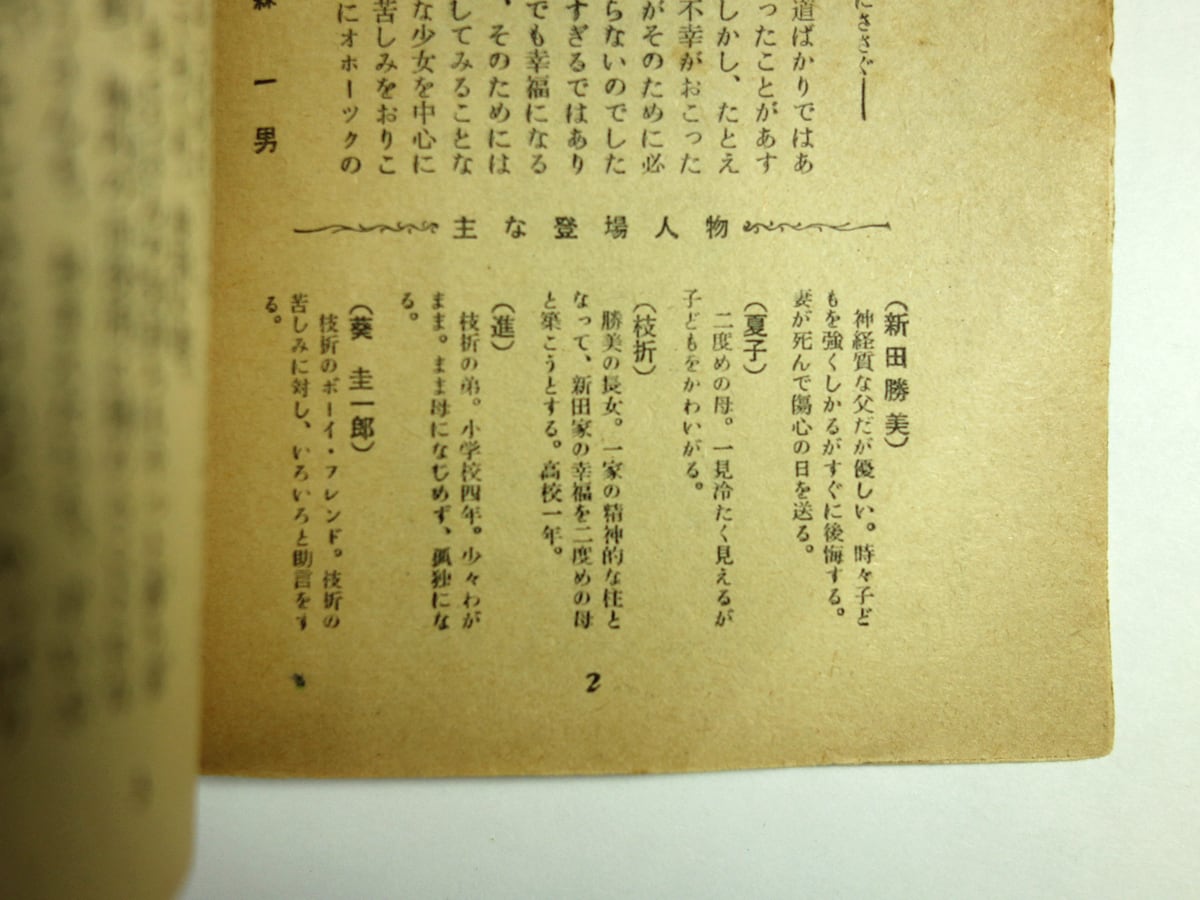 にささぐ――
道ばかりではあ
ったことがあす
しかし、たとえ
不幸がおこった
がそのために必
らないのでした
すぎるではあり
でも幸福になる
、そのためには
してみることな
な少女を中心に
苦しみをおりこ
にオホーツクの
一男
主な登場人物
(新田勝美)
神経質な父だが優しい。時々子ど
もを強くしかるがすぐに後悔する。
妻が死んで傷心の日を送る。
(夏子)
二度めの母。一見冷たく見えるが
子どもをかわいがる。
(枝折)
勝美の長女。一家の精神的な柱と
なって、新田家の幸福を二度めの母
と築こうとする。高校一年。
(進)
枝折の弟。小学校四年。少々わが
まま。まま母になじめず、孤独にな
る。
(葵 圭一郎)
枝折のボーイ・フレンド。枝折の
苦しみに対し、いろいろと助言をす
る。
2